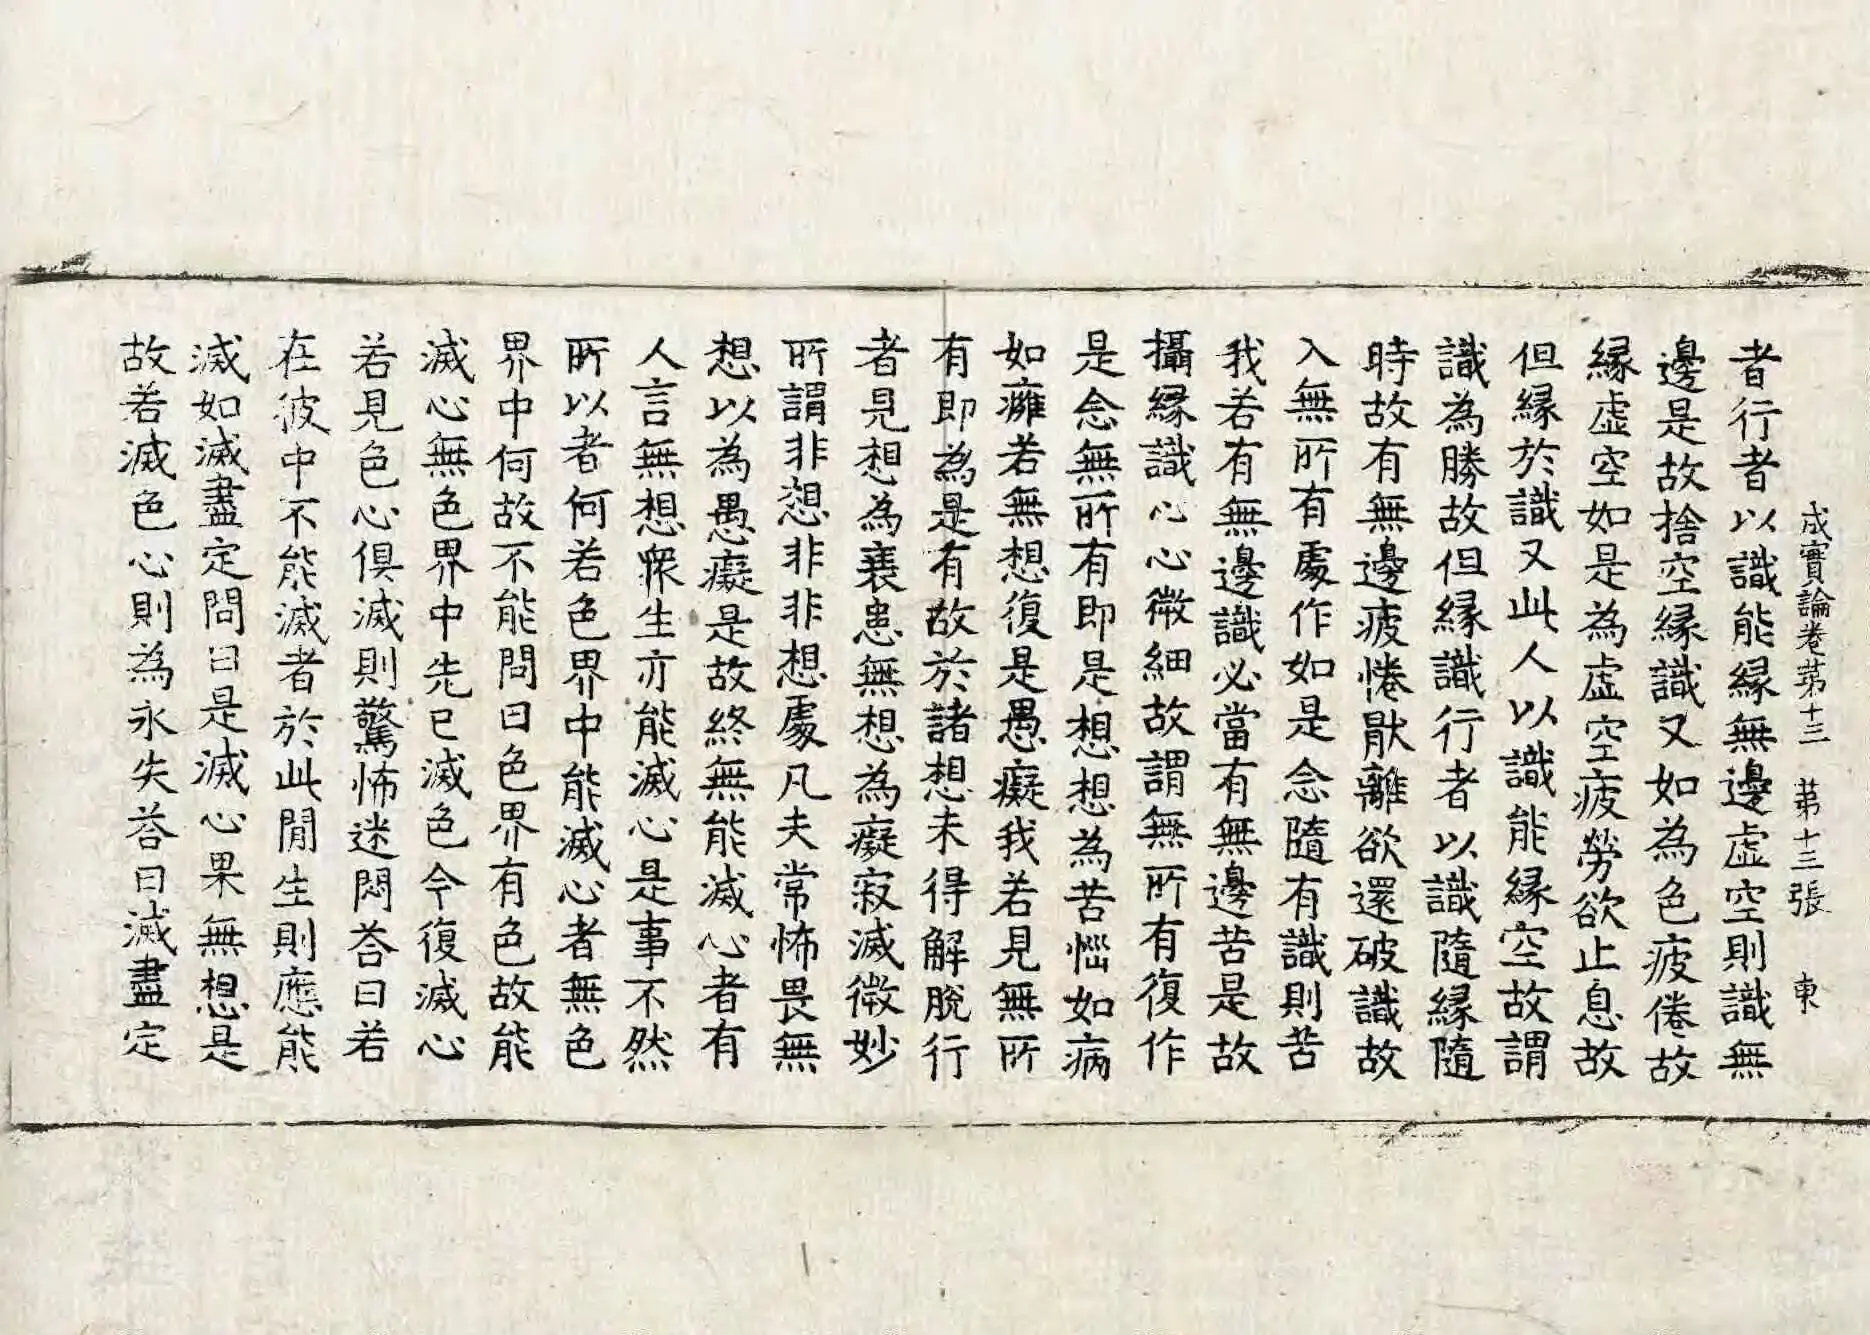 成實論卷苐十三 苐十三張 東
者行者以識能緣無邊虛空則識無
邊是故捨空緣識又如為色疲倦故
緣虛空如是為虛空疲勞欲止息故
但緣於識又此人以識能緣空故謂
識為勝故但緣識行者以識隨緣隨
時故有無邊疲惓猒離欲還破識故
入無所有處作如是念隨有識則苦
我若有無邊識必當有無邊苦是故
攝緣識心心微細故謂無所有復作
是念無所有即是想想為苦惱如病
如癰若無想復是愚癡我若見無所
有即為是有故於諸想未得解脫行
者見想為衰患無想為癡寂滅微妙
所謂非想非非想處凡夫常怖畏無
想以為愚癡是故終無能滅心者有
人言無想衆生亦能滅心是事不然
所以者何若色界中能滅心者無色
界中何故不能問曰色界有色故能
滅心無色界中先已滅色今復滅心
若見色心俱滅則驚怖迷悶荅曰若
在彼中不能滅者於此閒生則應能
滅如滅盡定問曰是滅心果無想是
故若滅色心則為永失荅曰滅盡定